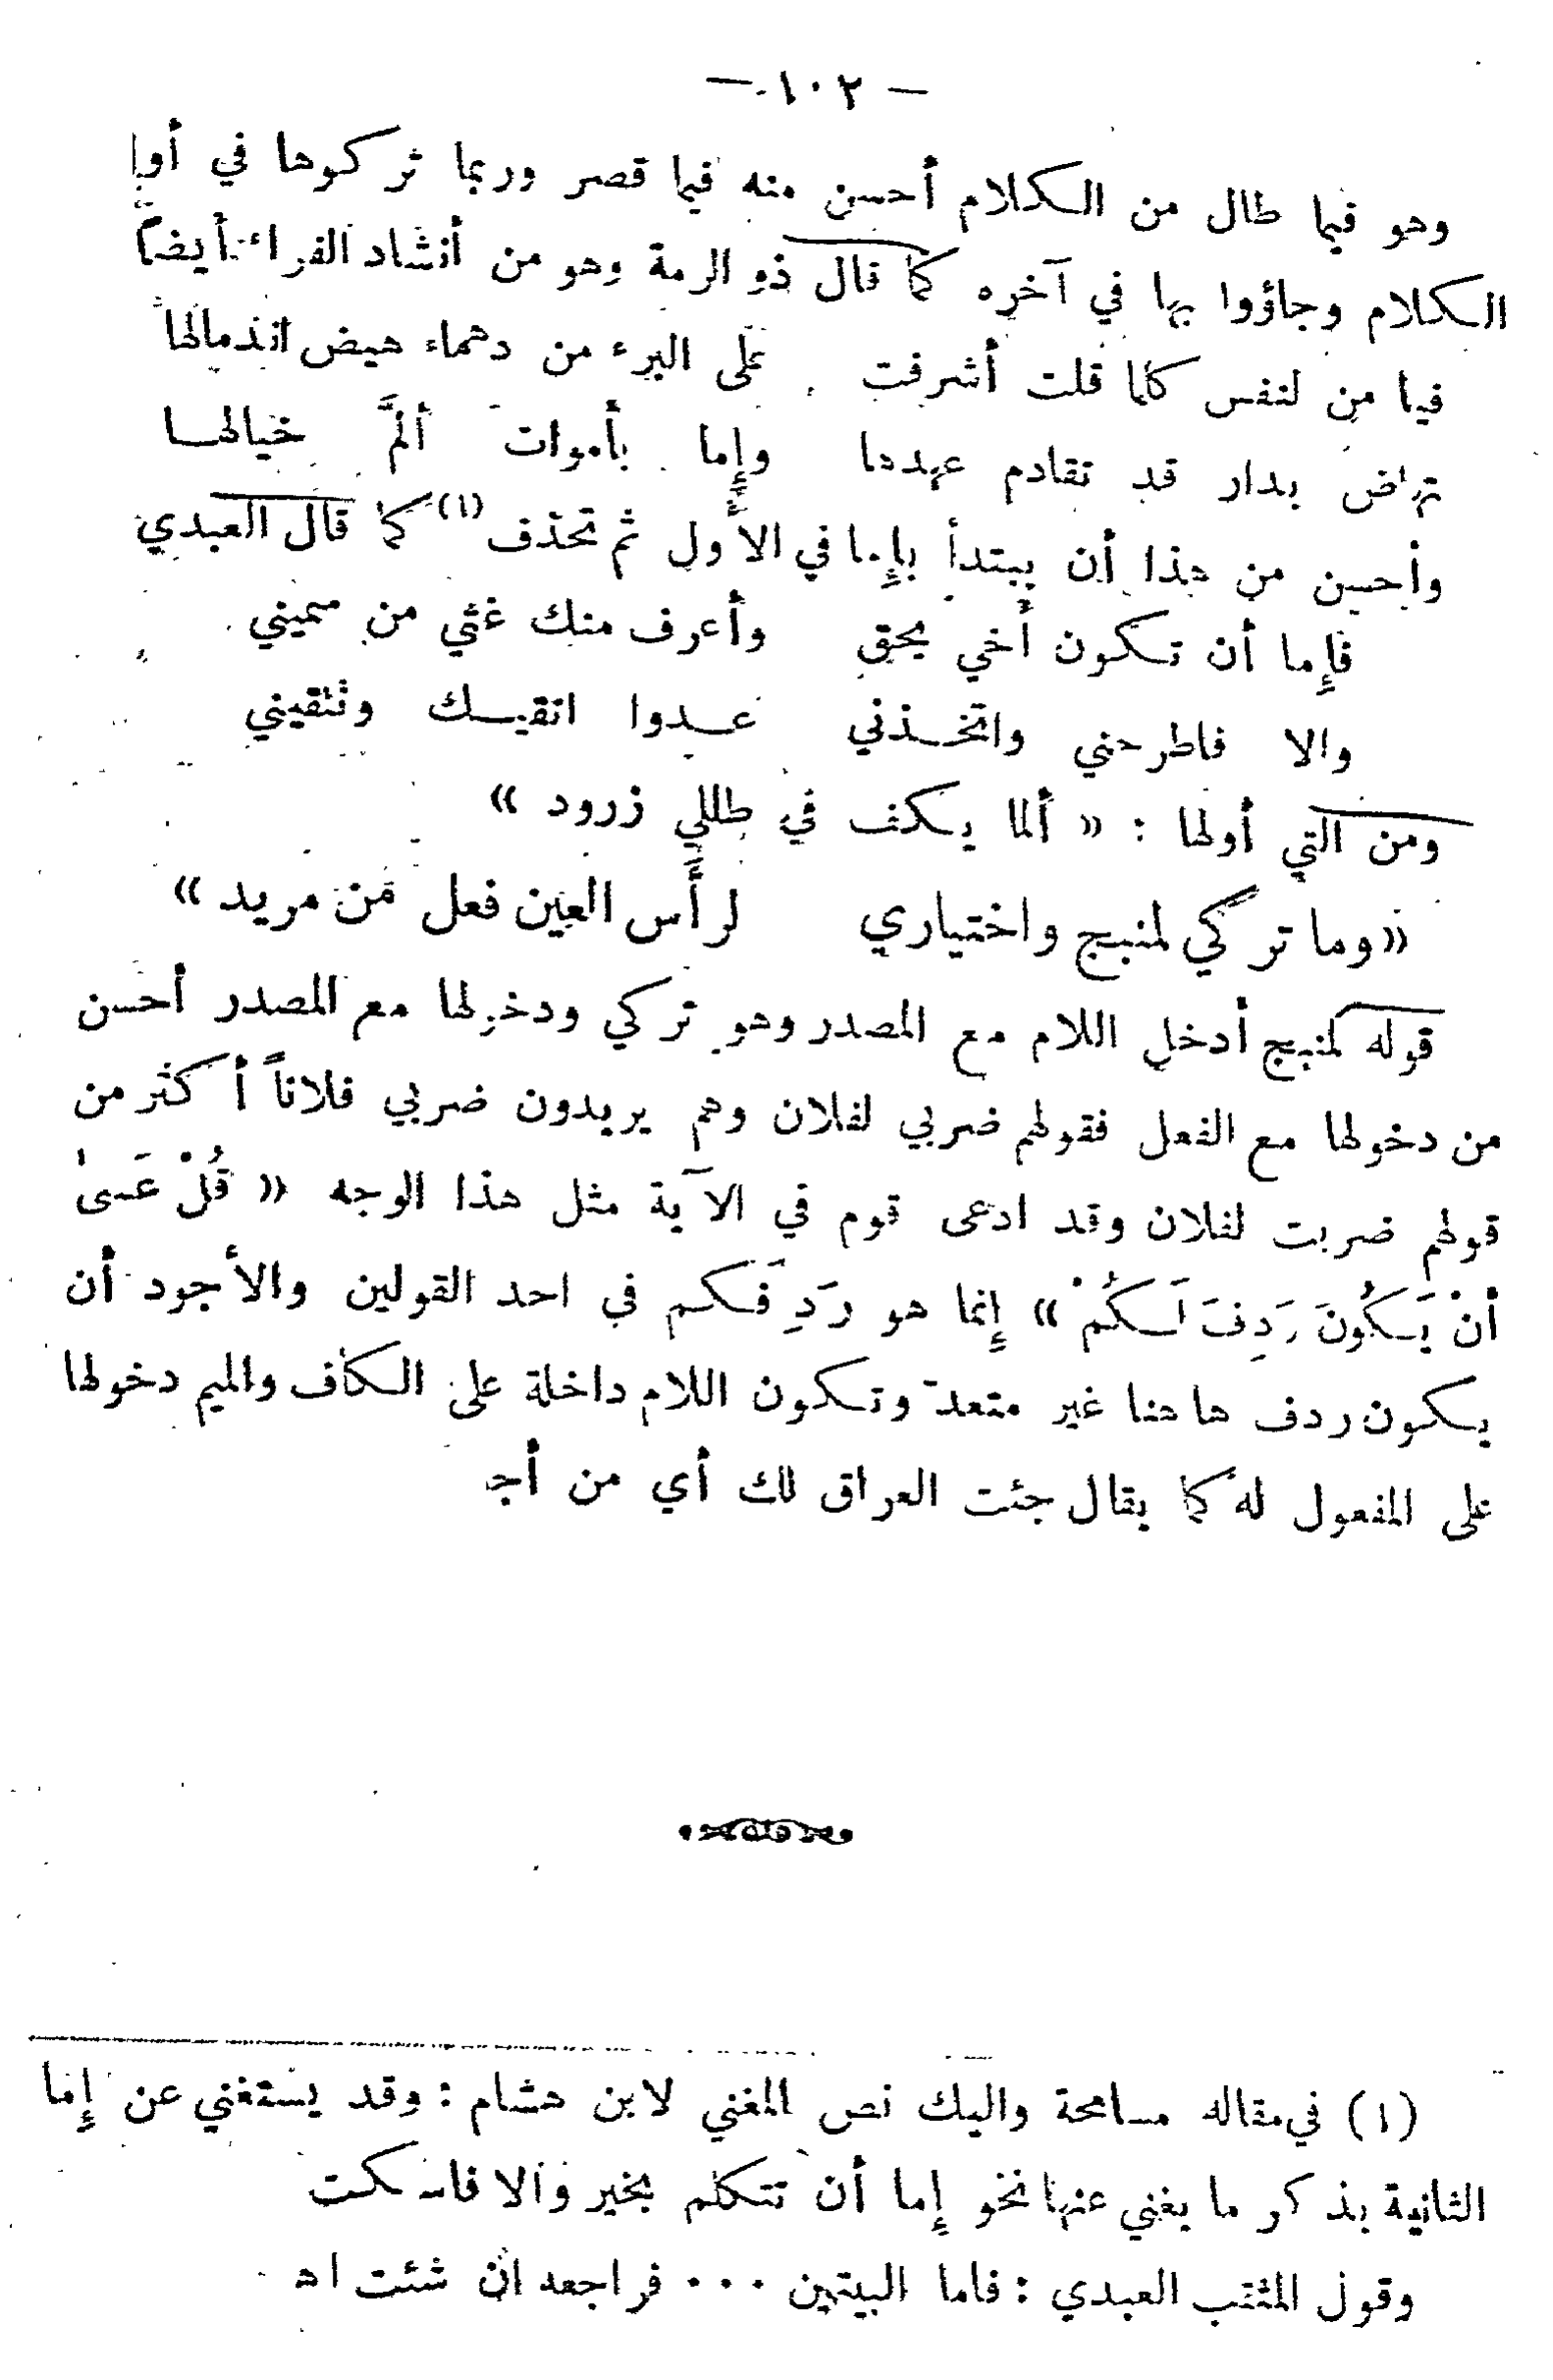 — ١٠٢ —
وهو فيما طال من الكلام أحسن منه فيما قصر وربما تركوها في
الكلام وجاؤوا بها في آخره كما قال ذو الرمة وهو من أنشاد الفراء أيضاً
فيا من لنفس كلما قلت أشرفت على البرء من دهماء هيض اندمالها
تهاض بدار قد تقادم عهدها وإما بأموات ألمَّ خيالها
وأحسن من هذا أن يبتدأ بإما في الأول ثم تحذف (١) كما قال العبدي
فإما أن تكون أخي بحق وأعرف منك غثي من سميني
والا فاطرحني واتخذني عدوا اتقيك وتتقيني
ومن التي أولها : « ألما يكف في طللي زرود »
«وما تركي لمنبج واختياري لرأس العين فعل مَن مريد »
قوله لمنبج أدخل اللام مع المصدر وهو تركي ودخولها مع المصدر أحسن
من دخولها مع الفعل فقولهم ضربي لفلان وهم يريدون ضربي فلاناً أكثر من
قولهم ضربت لفلان وقد ادعى قوم في الآية مثل هذا الوجه « قُلْ عَسىٰ
أنْ يَكُونَ رَدِفَ لَكُمْ » إنما هو رَدِفَكم في احد القولين والأجود أن
يكون ردف هاهنا غير متعدّ وتكون اللام داخلة على الكاف والميم دخولها
على المفعول له كما يقال جئت العراق لك أي من
(١) في مقاله مسامحة واليك نص المغني لابن هشام : وقد يستغني عن إما
الثانية بذكر ما يغني عنها نحو إما أن تتكلم بخير والا فاسكت
وقول المثقب العبدي : فاما البيتين ... فراجعه ان شئت اه